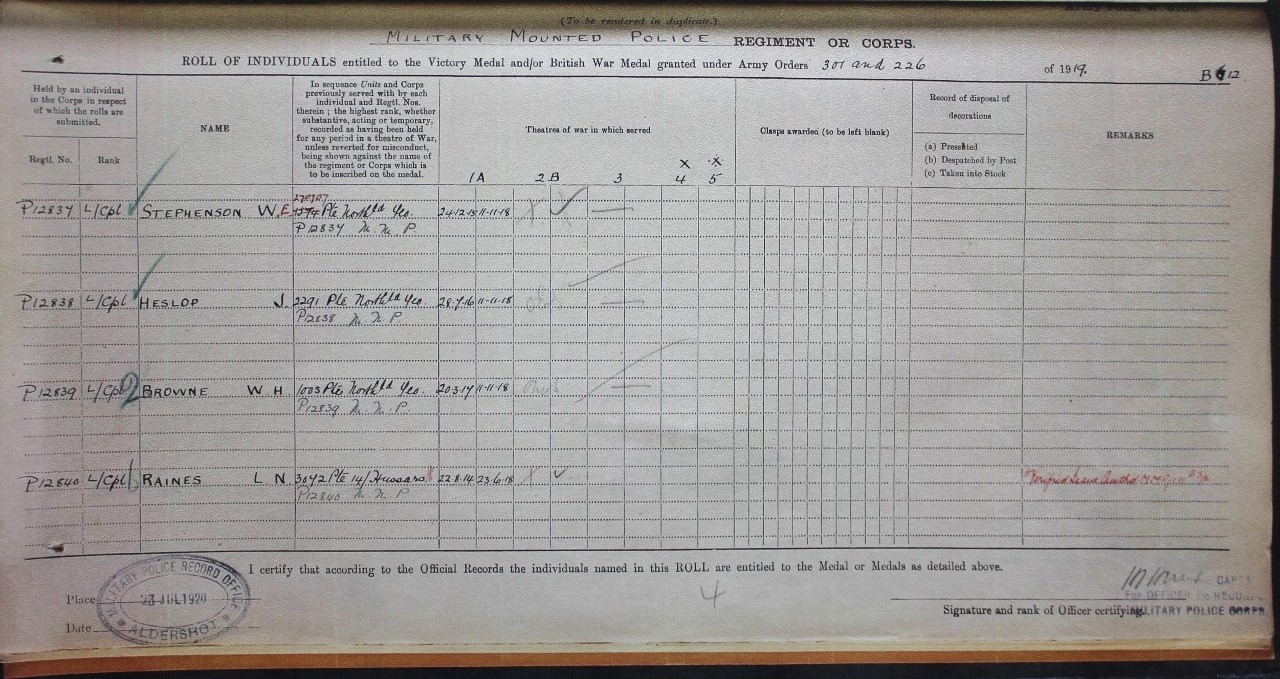 (To be rendered in duplicate.)
MILITARY MOUNTED POLICE REGIMENT OR CORPS.
ROLL OF INDIVIDUALS entitled to the Victory Medal and/or British War Medal granted under Army Orders 301 and 226 of 1919. B 12
Held by an individual in the Corps in respect of which the rolls are submitted.
Regtl. No.
Rank
NAME
In sequence Units and Corps
previously served with by each
individual and Regtl. Nos.
therein; the highest rank, whether
substantive, acting or temporary,
recorded as having been held
for any period in a theatre of War,
unless reverted for misconduct,
being shown against the name of
the regiment or Corps which is
to be inscribed on the medal.
Theatres of war in which served
1A 2B 3 x 4 x 5
Clasps awarded (to be left blank)
Record of disposal of
decorations
(a) Presented
(b) Despatched by Post
(c) Taken into Stock
REMARKS
P12837 L/Cpl STEPHENSON W.E. Pte North'ld Yeo. 24.12.15 11-11-18
P12837 M. M. P.
P12838 L/Cpl HESLOP J. 2291 Pte North'ld Yeo. 28.7.16 11-11-18
P12838 M. M. P.
P12839 L/Cpl 2 BROWNE W H. 1003 Pte North'ld Yeo. 20.3.17 11-11-18
P12839 M. M. P.
P12840 L/Cpl RAINES L N. 3042 Pte 14/Hussars 22.8.14 23.6.18
P12840 M. M. P.
I certify that according to the Official Records the individuals named in this ROLL are entitled to the Medal or Medals as detailed above.
4
Place
Date
MILITARY POLICE RECORD OFFICE
23 JUL 1920
ALDERSHOT
CAPT
For OFFICER i/c RECORDS
Signature and rank of Officer certifying.
MILITARY POLICE CORPS